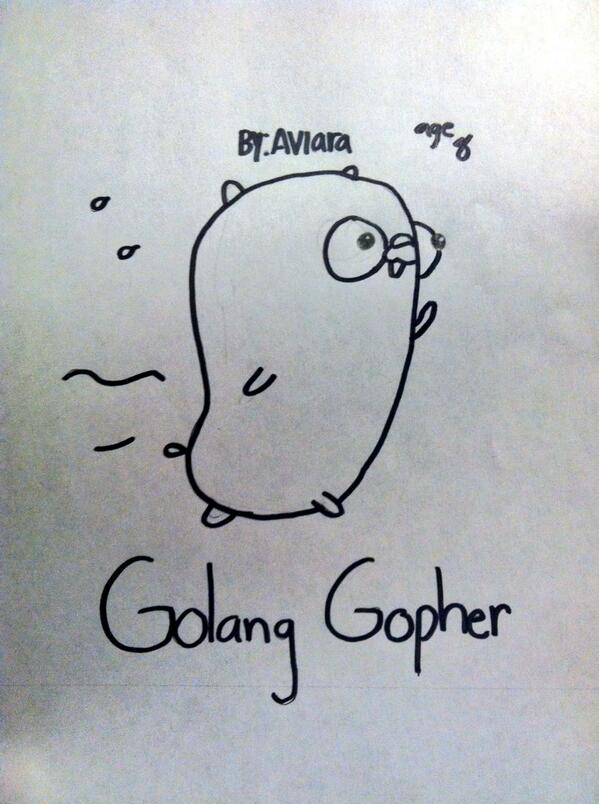 By. Aviara
age 8
Golang Gopher